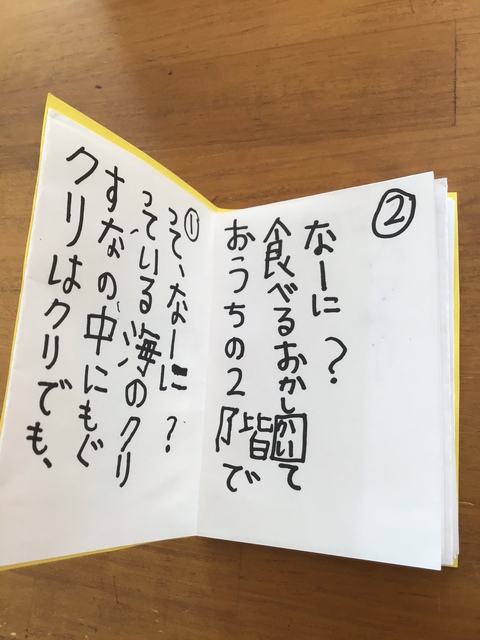 ①
クリはクリでも、
すなの中にもぐ
っている海のクリ
って、なーに？
②
おうちの2階で
かい
食べるおかして
なーに？